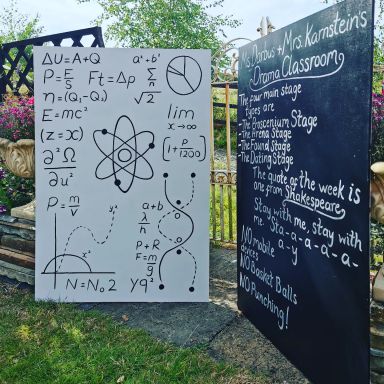 ΔU=A+Q
a²+b²
P=E/S
Ft=Δp
Σ n/√2
η=(Q₁-Q₂)
E=mc²
lim x→∞
(z=x)
[1+P/1200]
∂²Ω/∂u²
P=m/v
y²
x²
a+b
λ/n
P+R
F=m/g
N=No2
yq²
Ms Darbus + Mrs. Karnstein's
Drama Classroom
The four main stage
types are
-The Proscenium Stage
-The Arena Stage
-The Found Stage
-The Dating Stage
The quote of the week is
one from Shakespeare,
Stay with me, stay with
me, Sta-a-a-a-a-
a-y
NO mobile
devices
NO Basket Balls
NO Punching!